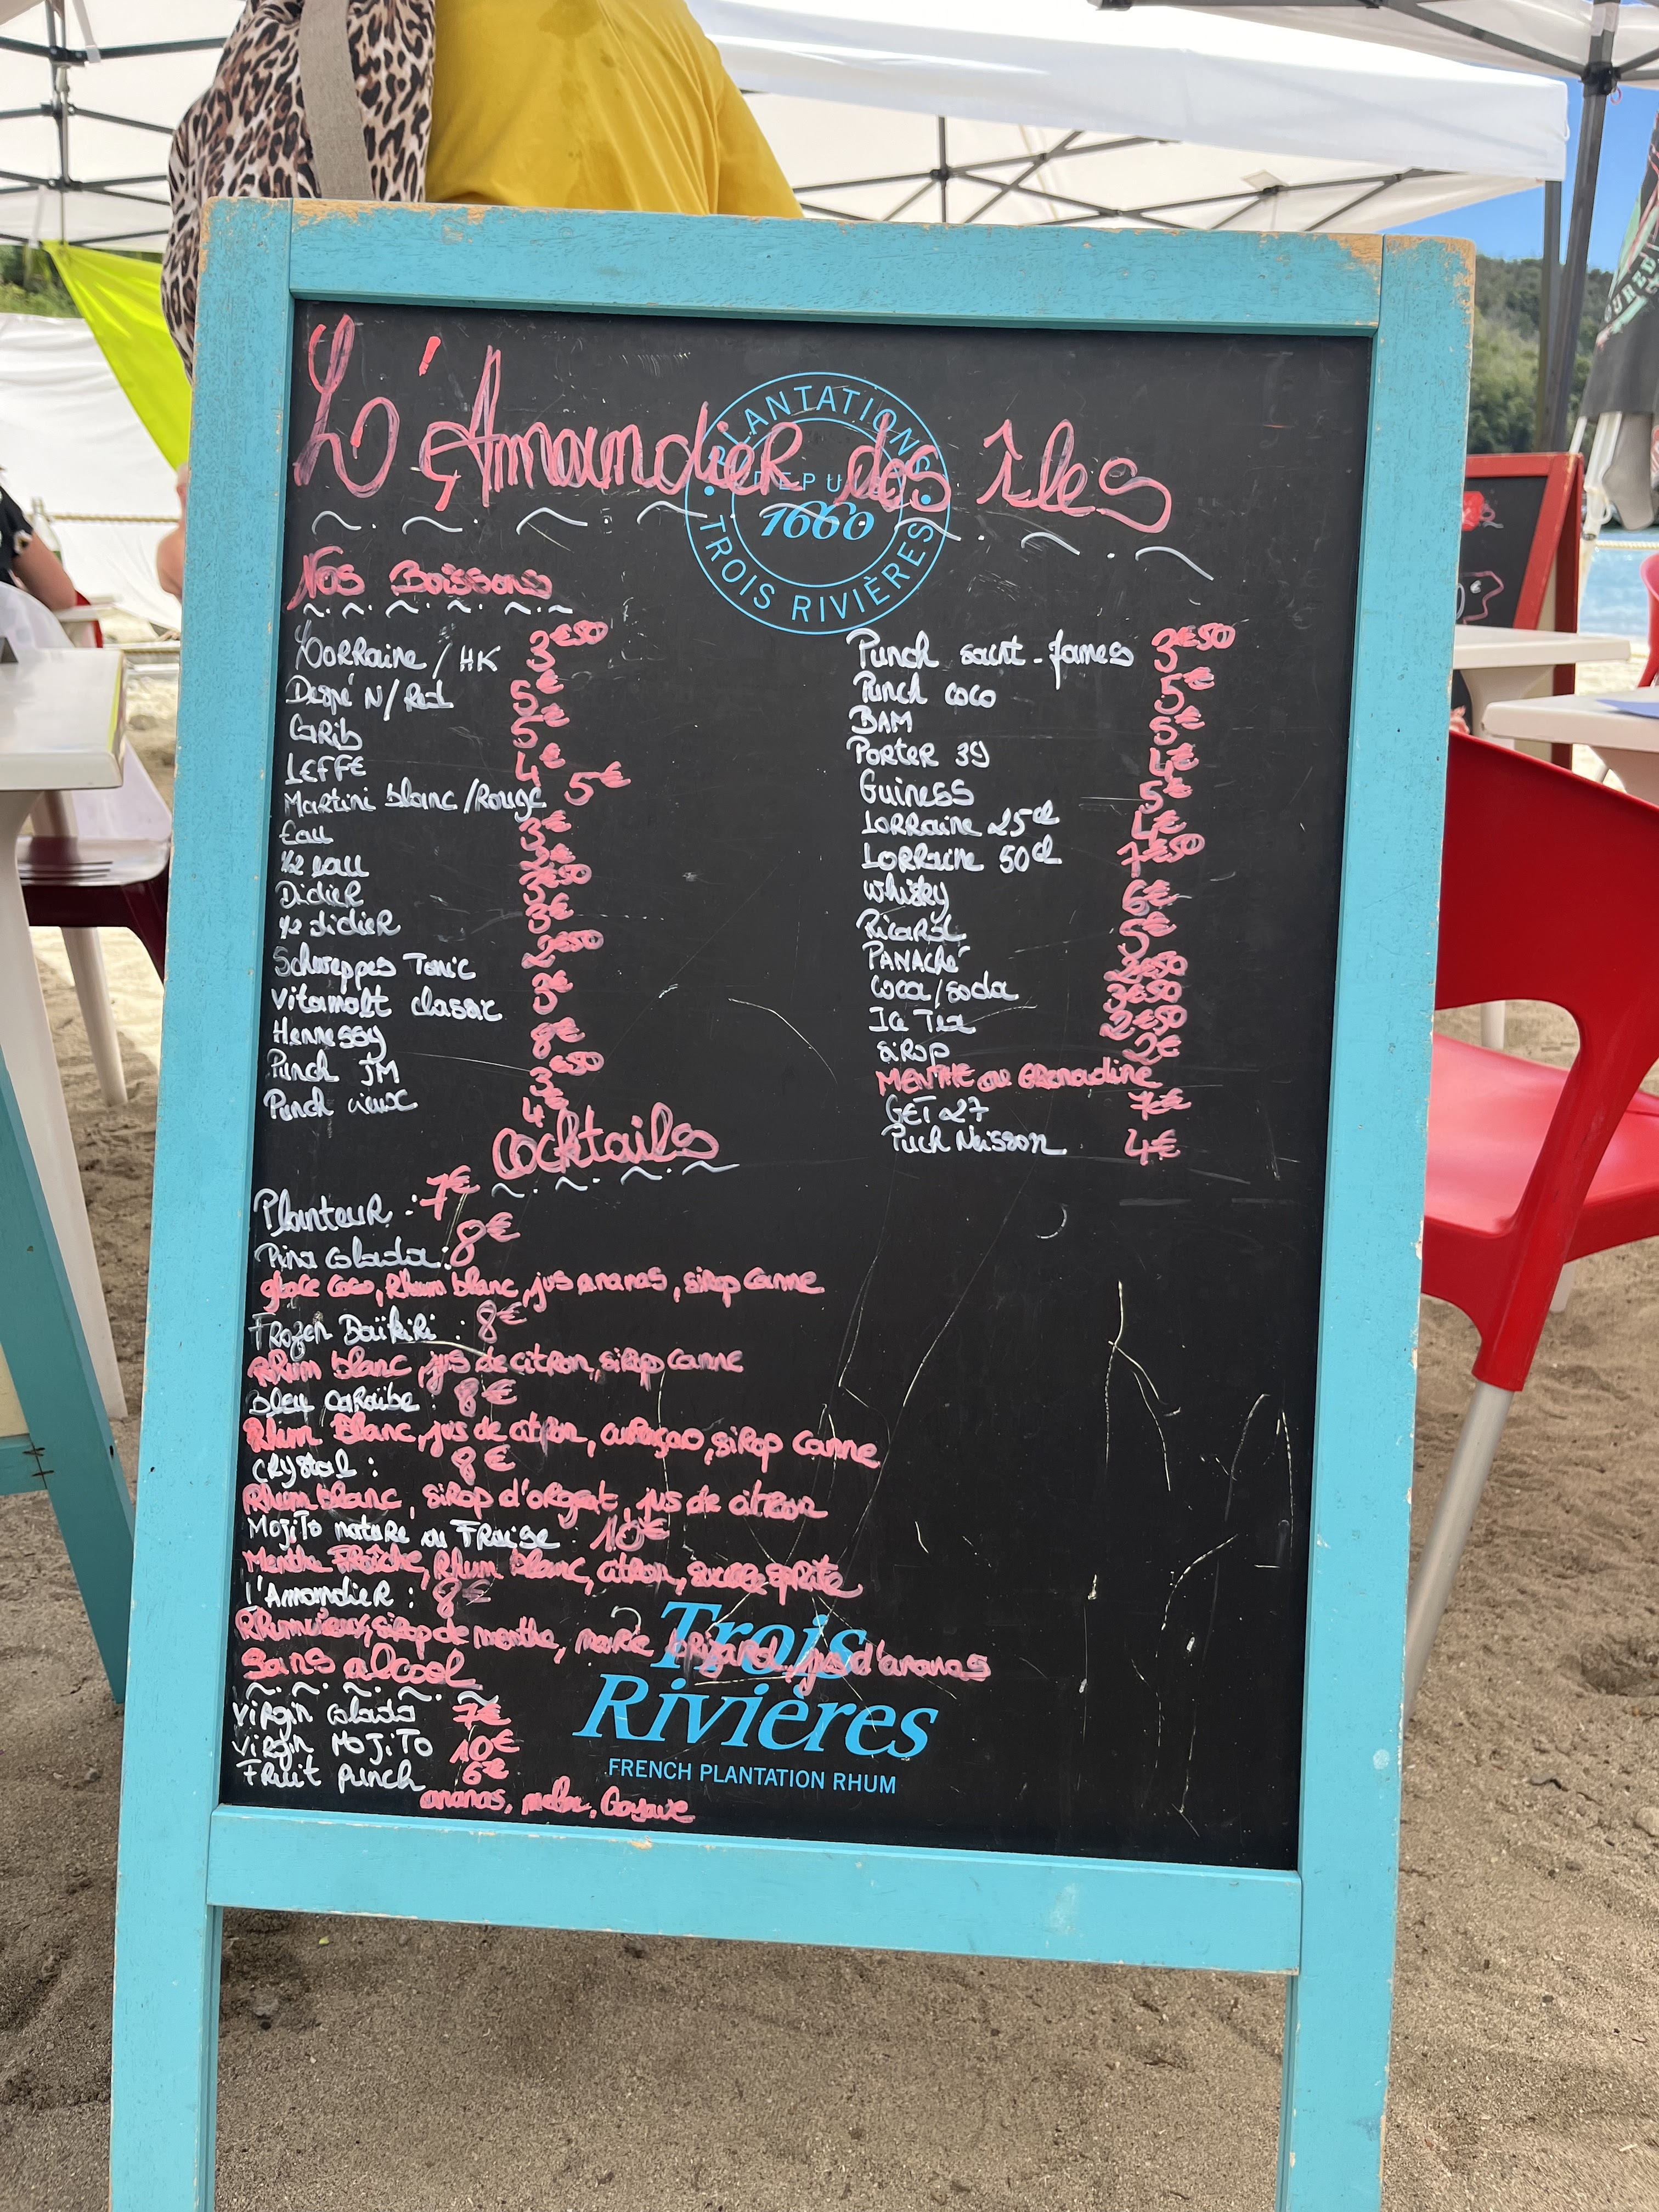 L'Amandier des îles
PLANTATIONS
DEPUIS
1660
TROIS RIVIÈRES
Nos Boissons
Lorraine / HK 3€50
Despé N/Red 5€
Carib 5€
LEFFE 4€
Martini blanc/Rouge 5€
Eau 3€
1/2 eau
Didier
1/2 didier 3€
Schweppes Tonic 2€50
Vitamalt classic 3€
Hennessy 8€
Punch JM 3€50
Punch vieux 4€
Punch saint-James 3€50
Punch coco 5€
BAM 5€
Porter 39 4€
Guiness 5€
Lorraine 25cl
Lorraine 50cl 7€50
Whisky 6€
Ricard
PANAché
Coca/soda 3€50
Ice Tea 2€50
sirop 2€
MENTHE ou Grenadine
GET 27 7€
Puch Neisson 4€
Cocktails
Planteur : 7€
Pina Colada : 8€
glace Coco, Rhum blanc, jus ananas, sirop Canne
Frozen Daïkiri : 8€
Rhum blanc, jus de citron, sirop Canne
Bleu Caraïbe : 8€
Rhum Blanc, jus de citron, curaçao, sirop Canne
Crystal : 8€
Rhum blanc, sirop d'orgeat, jus de citron
MOJITO nature ou Fraise : 10€
Menthe Fraîche, Rhum blanc, citron, sucre, sprite
l'Amandier : 8€
Rhum vieux, sirop de menthe, marie brizard, jus d'ananas
Sans alcool
Virgin Colada 7€
Virgin MOJITO 10€
Fruit punch 6€
ananas, melon, Goyave
Trois
Rivières
FRENCH PLANTATION RHUM